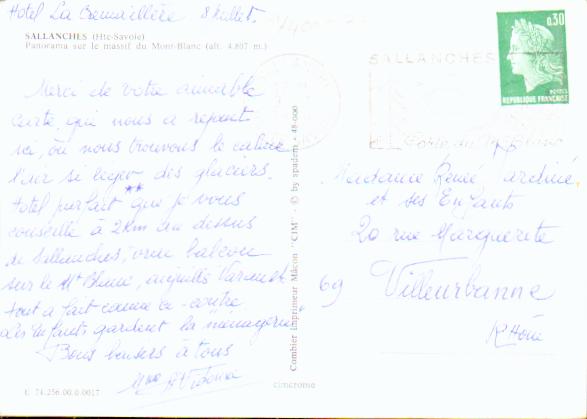 Hotel La Cremaillère 8 Juillet.
SALLANCHES (Hte-Savoie)
Panorama sur le massif du Mont-Blanc (alt. 4.807 m.)
Merci de votre aimable
carte, qui nous a
ici, où nous trouvons le calme
l'air si léger des glaciers.
Hotel parfait que je vous
conseille à 2 km au dessus
de Sallanches, vrai balcon
sur le Mt Blanc, aiguilles Varens
tout a fait comme ci-contre
Les Enfants gardent la "ménagerie"
Bons baisers à tous
Mme
E 74.256.00.0.0017
Combier Imprimeur Mâcon "CIM" - © by spadem - 48-000
cimcrome
SALLANCHES
0,30
POSTES
REPUBLIQUE FRANÇAISE
Madame René
et ses Enfants
20 rue Marguerite
69 Villeurbanne
Rhône